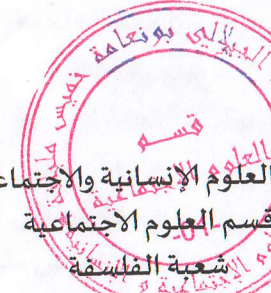 الجيلالي بونعامة خميس مليانة
قسم
العلوم الاجتماعية
العلوم الإنسانية والاجتماع
قسم العلوم الاجتماعية
شعبة الفلسفة